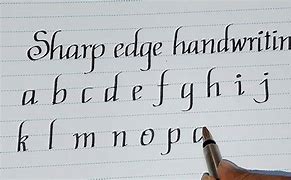 Sharp edge handwritin
a b c d e f g h i j
k l m n o p